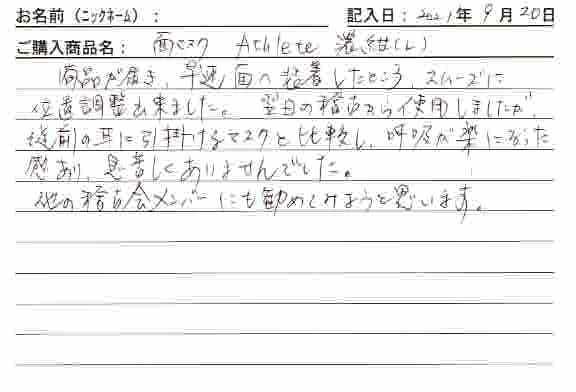 お名前(ニックネーム): 記入日:2021年9月20日
ご購入商品名: 面マスク Athlete 濃紺(L)
商品が届き、早速面へ装着したところ、スムーズに
位置調整出来ました。翌日の稽古から使用しましたが、
従前の耳に引掛けるマスクと比較し、呼吸が楽になった
感あり、息苦しくありませんでした。
他の稽古会メンバーにも勧めてみようと思います。